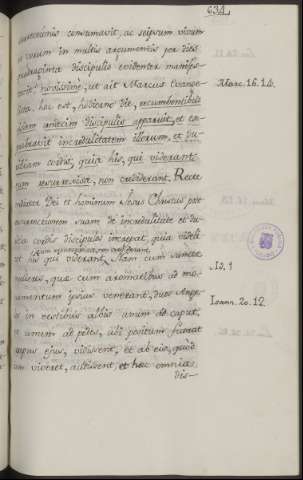 831.
surrectionis consumavit, ac seipsum vivum
et verum in multis argumentis per dies
quadraginta discipulis evidenter manifes-
novissime, ut ait Marcus Evange-
lista, hoc est, hodierno die, recumbentibus
illis undecim discipulis apparuit, et ex-
probravit incredulitatem illorum, et du-
ritiam cordis, quia his, qui viderant
eum resurrexisse, non crediderant. Recte
mediator Dei et hominum Jesus Christus post
resurrectionem suam de incredulitate et du-
ritia cordis discipulos increpat, quia videli-
cet his qui viderant,
eum resurrexisse, non crediderant.
Nam cum sanctae
mulieres, quae cum aromatibus ad mo-
numentum ipsius venerant, duos Ange-
los in vestibus albis unum ad caput,
et unum ad pedes, ubi positum fuerat
corpus ejus, vidissent, et ab eis, quod
jam viveret, audissent, et haec omnia
dis-
Marc. 16. 14.
Id. 1
Ioann. 20. 12.